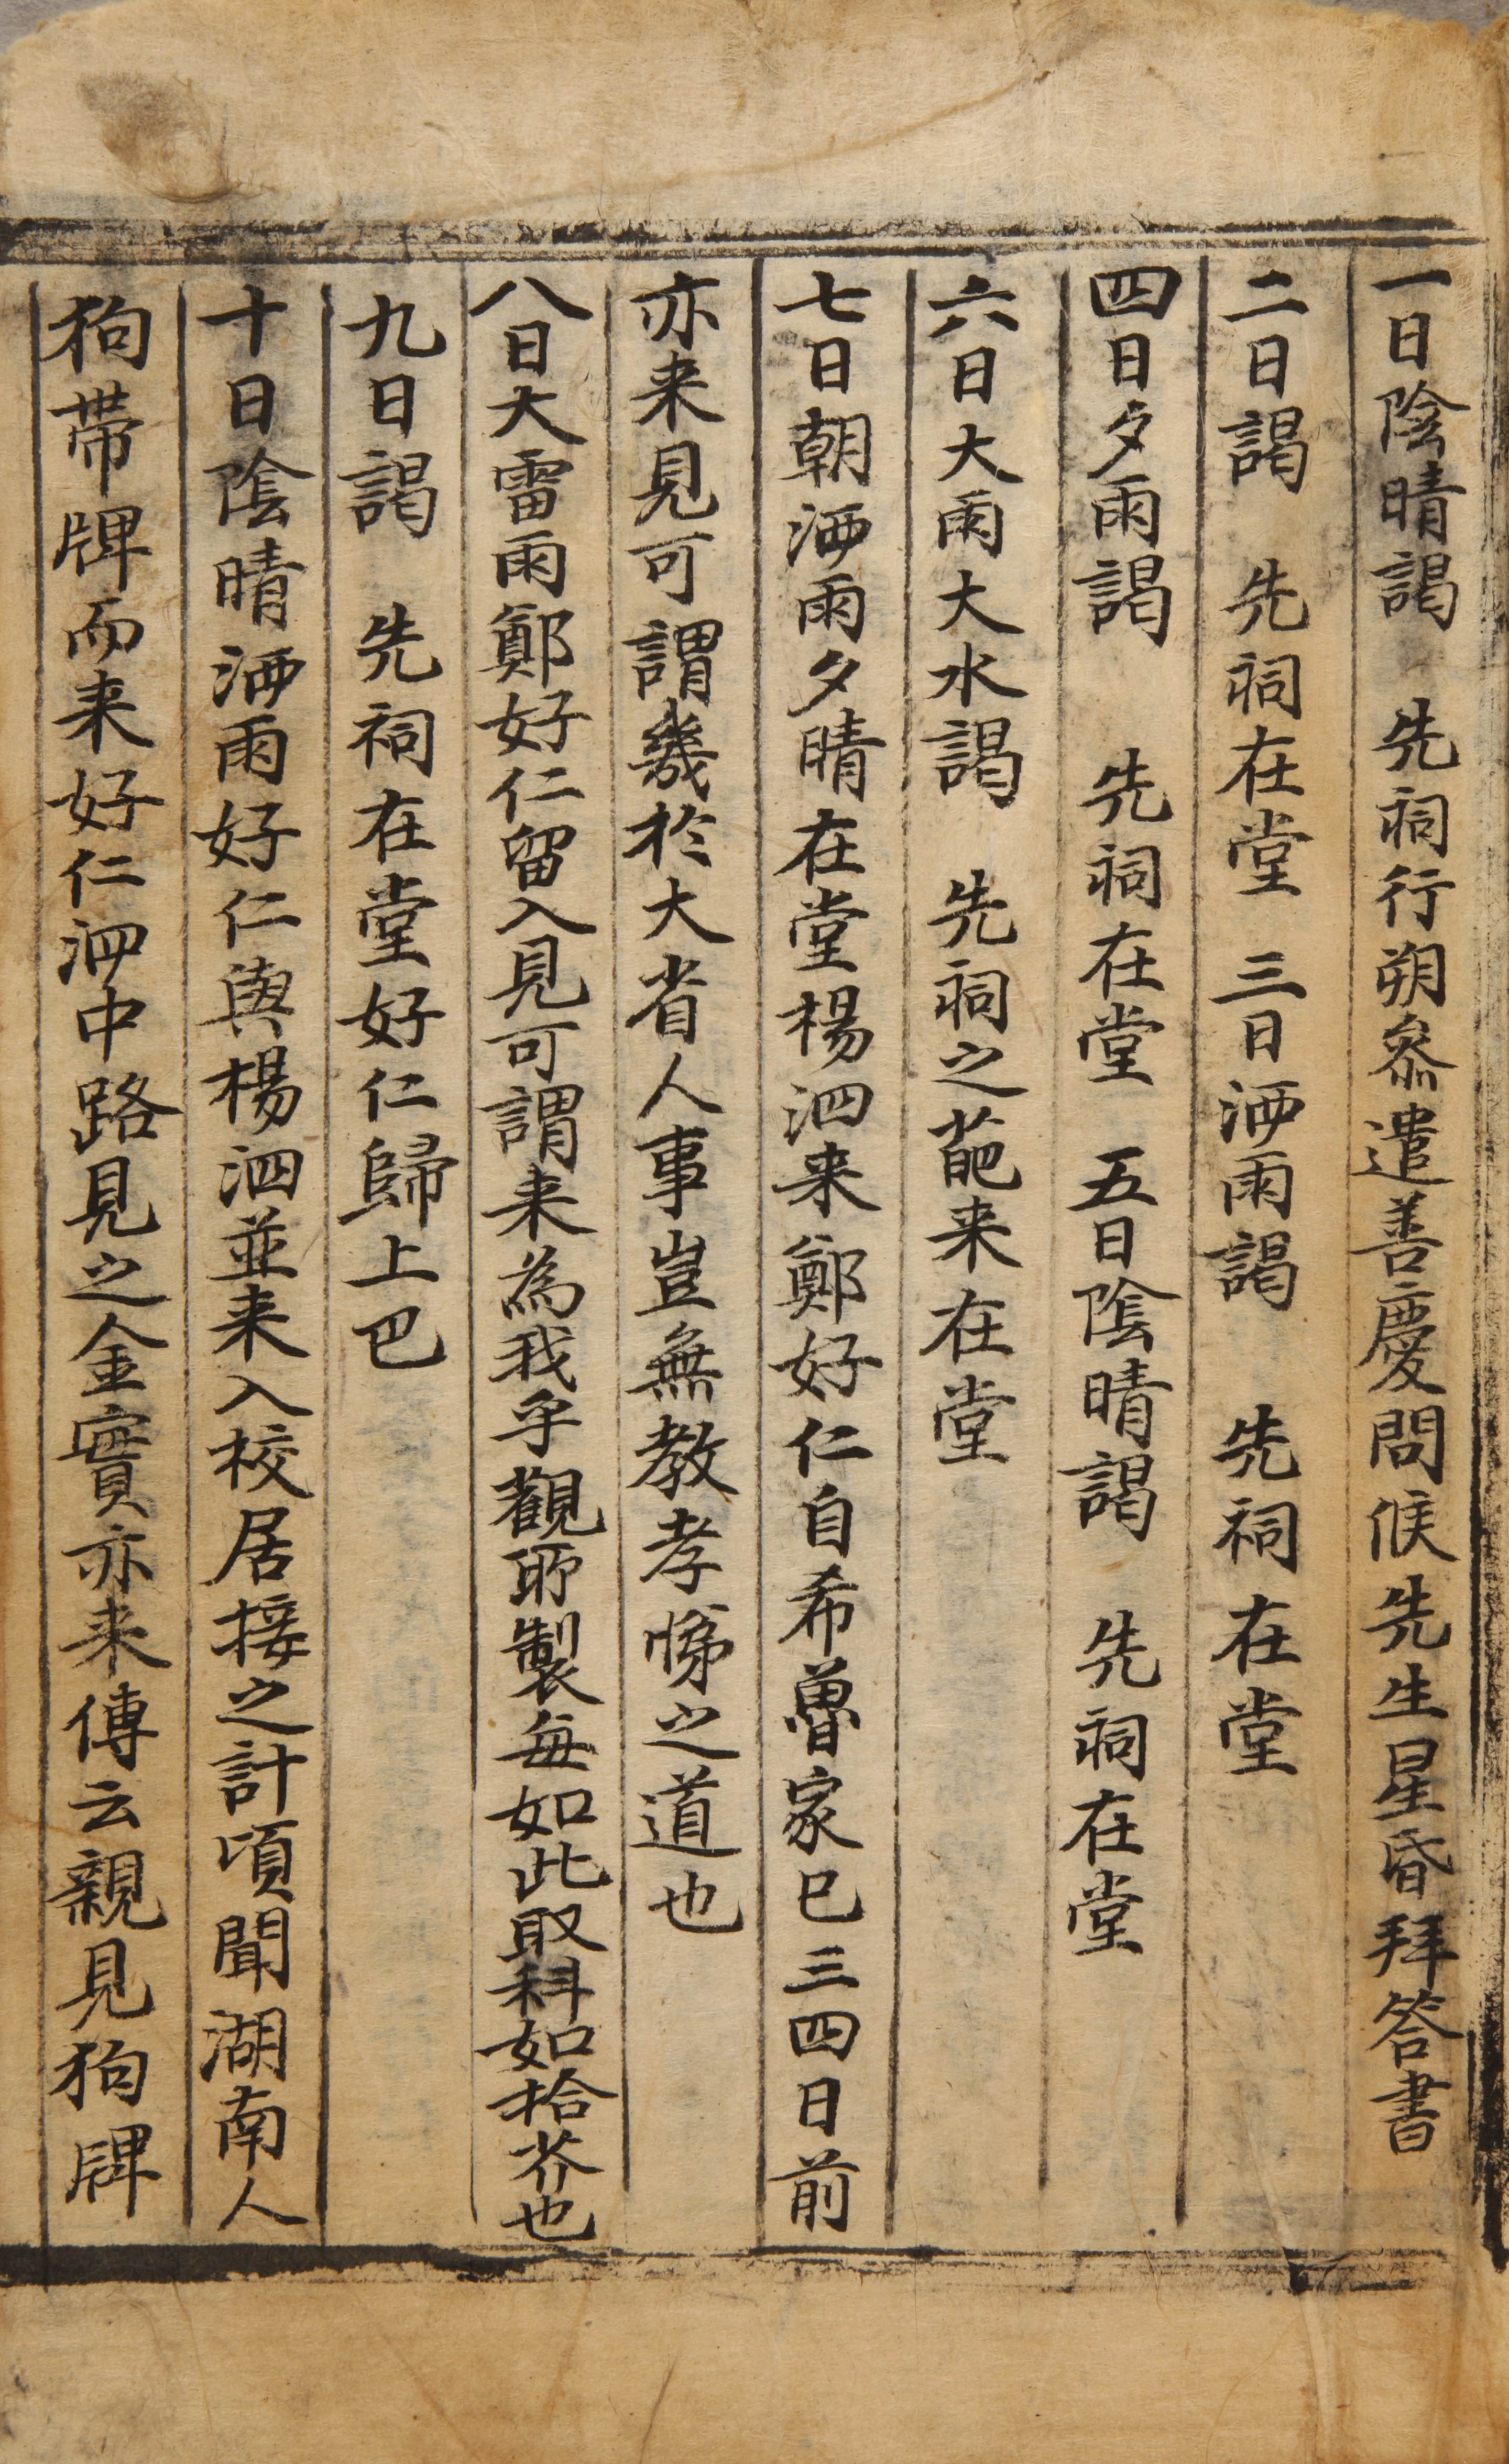 一日陰晴謁　先祠行朔叅遣善慶問候先生星昏拜答書
二日謁　先祠在堂　三日洒雨謁　先祠在堂
四日夕雨謁　先祠在堂　五日陰晴謁　先祠在堂
六日大雨大水謁　先祠之葩来在堂
七日朝洒雨夕晴在堂楊泗来鄭好仁自希魯家已三四日前
亦来見可謂幾於大省人事豈無教孝悌之道也
八日大雷雨鄭好仁留入見可謂来為我乎觀所製每如此取科如拾芥也
九日謁　先祠在堂好仁歸上巴
十日陰晴洒雨好仁與楊泗並来入校居接之計頃聞湖南人
狗帶牌而来好仁泗中路見之金實亦来傳云親見狗牌